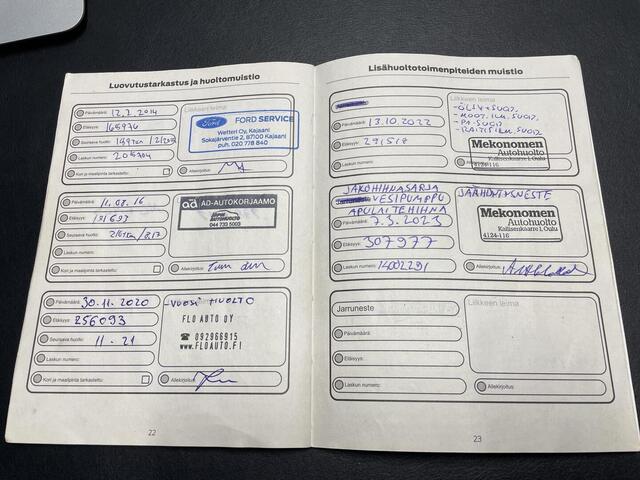 Luovutustarkastus ja huoltomuistio
Päivämäärä: 12.7.2014
Etäisyys: 165976
Seuraava huolto:
Laskun numero: 205204
Kori ja maalipinta tarkastettu:
Liikkeen leima
Ford
FORD SERVICE
Wetteri Oy, Kajaani
Sokajärventie 2, 87100 Kajaani
puh. 020 778 840
Allekirjoitus:
Päivämäärä: 11.08.16
Etäisyys: 191693
Seuraava huolto:
Laskun numero:
Kori ja maalipinta tarkastettu:
ad AD-AUTOKORJAAMO
044 733 5003
Allekirjoitus:
Päivämäärä: 30.11.2020
Etäisyys: 256093
Seuraava huolto: 11.21
Laskun numero:
Kori ja maalipinta tarkastettu:
-VUOSI HUOLTO
FLO AUTO OY
☎ 092966915
WWW.FLOAUTO.FI
Allekirjoitus:
22
Lisähuoltotoimenpiteiden muistio
Päivämäärä: 13.10.2022
Etäisyys: 291518
Laskun numero:
Liikkeen leima
-ÖLJY+SUOD.
-MOOT.ILM.SUOD.
-PA-SUOD.
-RAITIS ILM.SUOD.
Mekonomen
Autohuolto
4124-116
Oulu
Allekirjoitus:
JAKOHIHNASARJA
VESIPUMPPU
APULAITEHIHNA
Päivämäärä: 7.3.2023
Etäisyys: 307977
Laskun numero: 14002291
JÄÄHDYTYSNESTE
Mekonomen
Autohuolto
Kallisenkaarre 1, Oulu
4124-116
Allekirjoitus:
Jarruneste
Päivämäärä:
Etäisyys:
Laskun numero:
Liikkeen leima
Allekirjoitus:
23